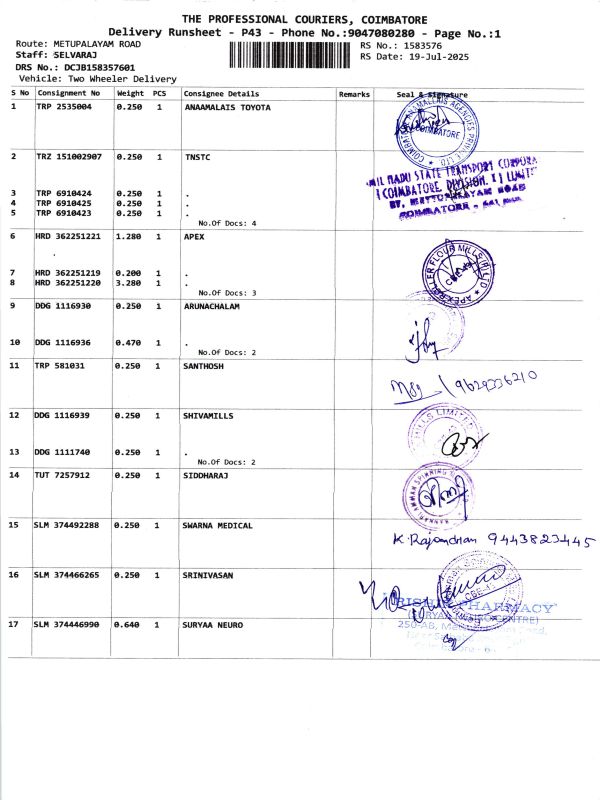 THE PROFESSIONAL COURIERS, COIMBATORE
Delivery Runsheet - P43 - Phone No.:9047080280 - Page No.:1
Route: METUPALAYAM ROAD
Staff: SELVARAJ
DRS No.: DCJB158357601
Vehicle: Two Wheeler Delivery
RS No.: 1583576
RS Date: 19-Jul-2025
S No Consignment No Weight PCS Consignee Details Remarks Seal & Signature
1 TRP 2535004 0.250 1 ANAAMALAIS TOYOTA
COIMBATORE
2 TRZ 151002907 0.250 1 TNSTC
STATE TRANSPORT
COIMBATORE DIVISION
3 TRP 6910424 0.250 1 .
4 TRP 6910425 0.250 1 .
5 TRP 6910423 0.250 1 .
No.Of Docs: 4
COIMBATORE
6 HRD 362251221 1.280 1 APEX
APEX ROLLER FLOUR MILLS (P) LTD
7 HRD 362251219 0.200 1 .
8 HRD 362251220 3.280 1 .
No.Of Docs: 3
9 DDG 1116930 0.250 1 ARUNACHALAM
10 DDG 1116936 0.470 1 .
No.Of Docs: 2
11 TRP 581031 0.250 1 SANTHOSH
9629336210
12 DDG 1116939 0.250 1 SHIVAMILLS
MILLS LIMITED
13 DDG 1111740 0.250 1 .
No.Of Docs: 2
14 TUT 7257912 0.250 1 SIDDHARAJ
SPINNING
15 SLM 374492288 0.250 1 SWARNA MEDICAL
K. Rajendran 9443823445
16 SLM 374466265 0.250 1 SRINIVASAN
PHARMACY
17 SLM 374446990 0.640 1 SURYAA NEURO
250-AB,